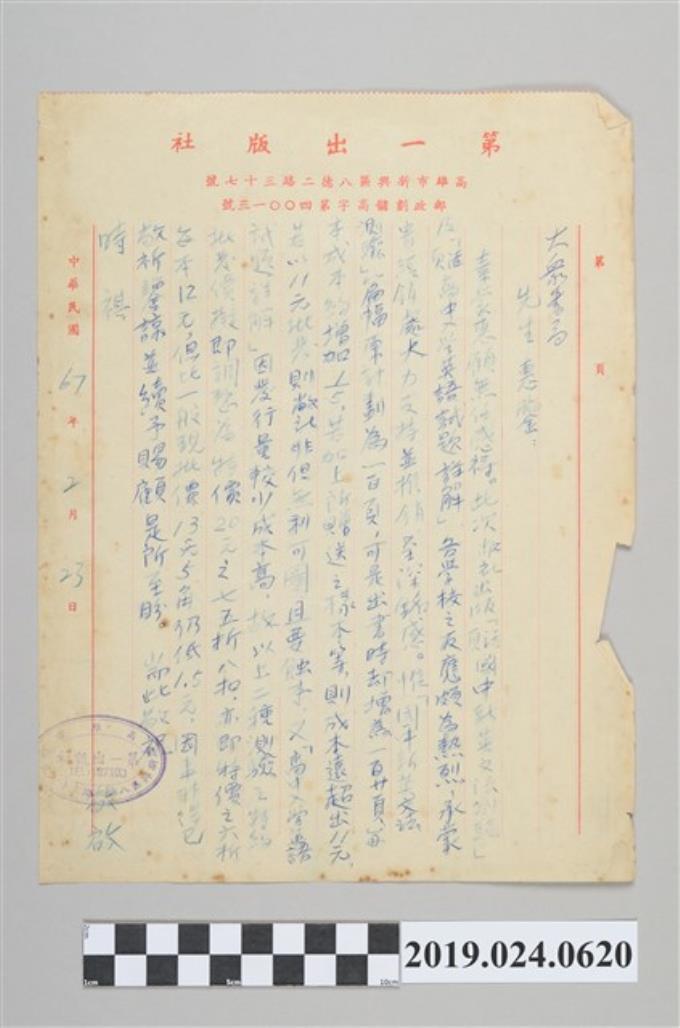 第一出版社
高雄市新興區八德二路三十七號
郵政劃儲高字第四〇〇一三號
第 頁
大眾書局
先生惠鑒：
惠顧無任感禱。此次敝社出版「國中新英文法測驗」
及「高中入學英語試題詳解」各學校之反應頗為熱烈，承蒙
貴經銷處大力支持並推銷至深銘感。惟「國中新英文法
測驗」篇幅原計劃為一百頁，可是出書時却增為一百廿頁，每
本成本約增加1.5，若加上所贈送之樣本等，則成本遠超出11元，
若以11元批發則敝社非但無利可圖且要蝕本，又「高中入學英語
試題詳解」因發行量較少成本高，故以上二種測驗之特約
批發價擬即調整為特價20元之七五折八扣，亦即特價之六折
每本12元，但比一般現批價13元5角仍低1.5元，因事非得已
敬祈鑒諒並續予賜顧是所至盼。 耑此敬祝
時祺
敬啟
中華民國67年2月23日
2019.024.0620
1cm 5cm 10cm